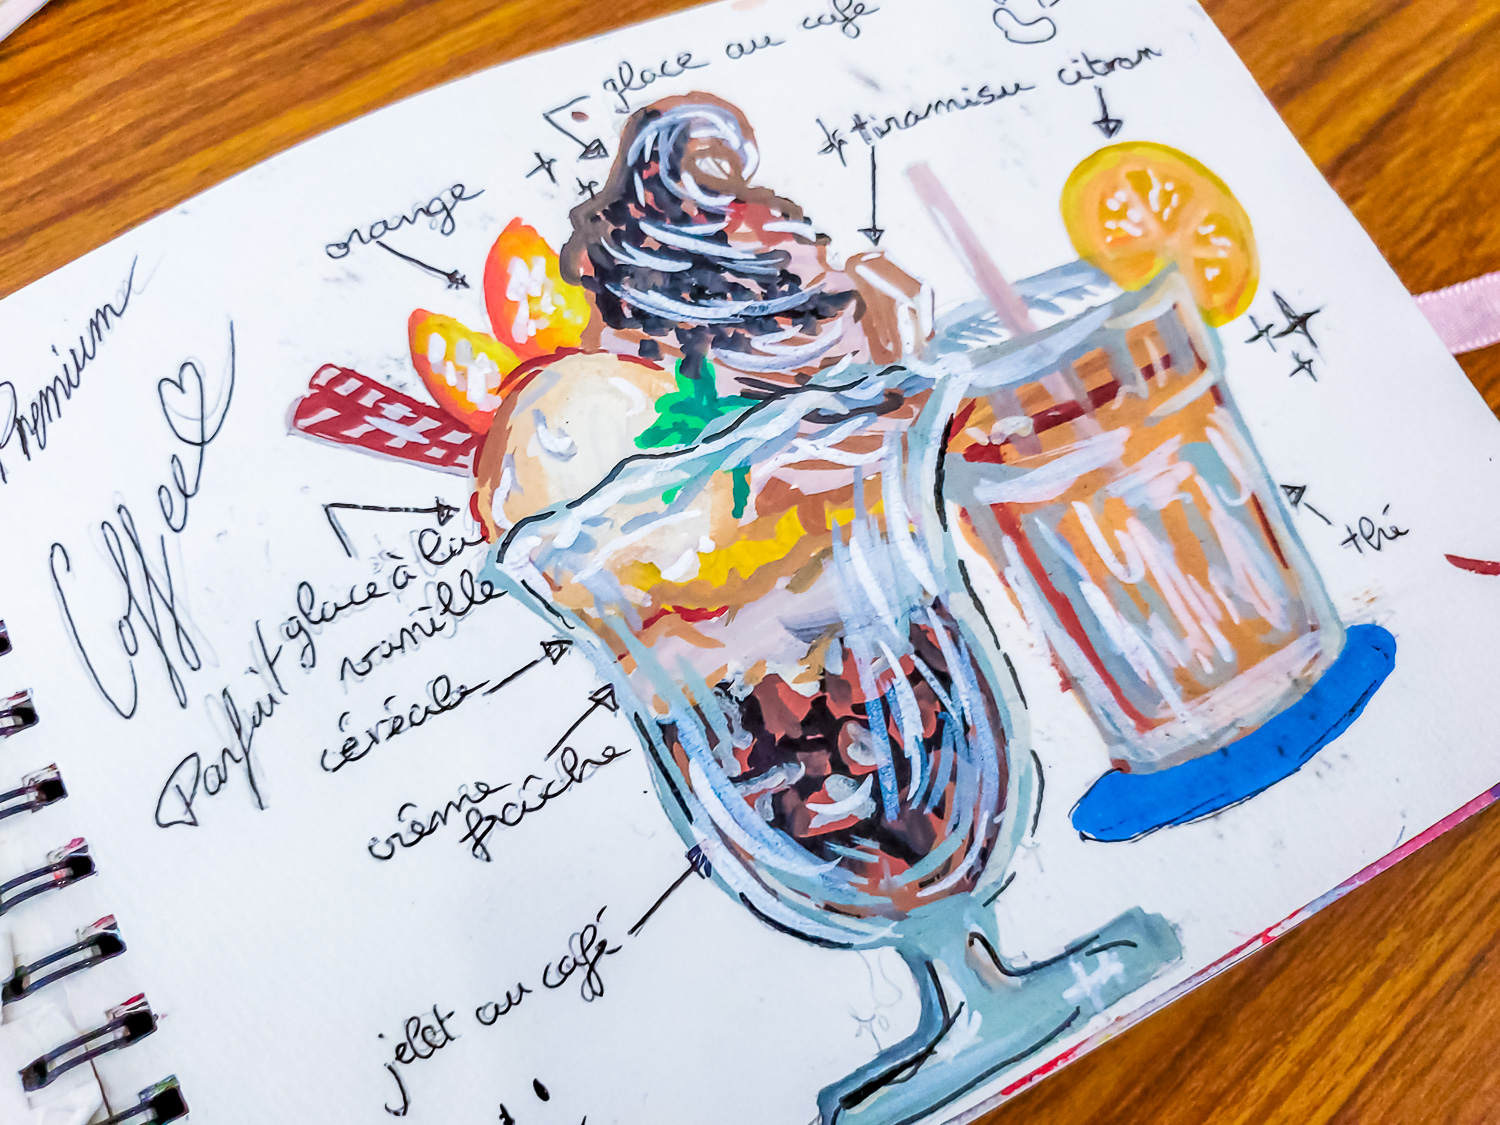 glace au café
tiramisu citron
orange
Premium
Coffee
Parfait glace à la
vanille
céréale
crème
fraîche
jelet au café
thé